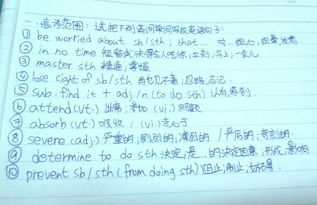 一.语法范围：试把下列查词 写成英语句子：
① be worried about sb/sth, that... 对…担心,担忧
② in no time 立刻,马上,一会儿
③ master sth 精通,掌握
④ lose sight of sb/sth 再也见不着,忽略,忘记
⑤ sub. find it + adj/n. (to do sth) 认为
⑥ attend (vt) 出席,参加 (vi)
⑦ absorb (vt) 吸收, (vi)
⑧ severe (adj) 严重的,剧烈的 /严厉的,苛刻的.
⑨ determine to do sth 决定,是…的决定因素,
⑩ prevent sb/sth (from doing sth) 阻止,制止,妨碍